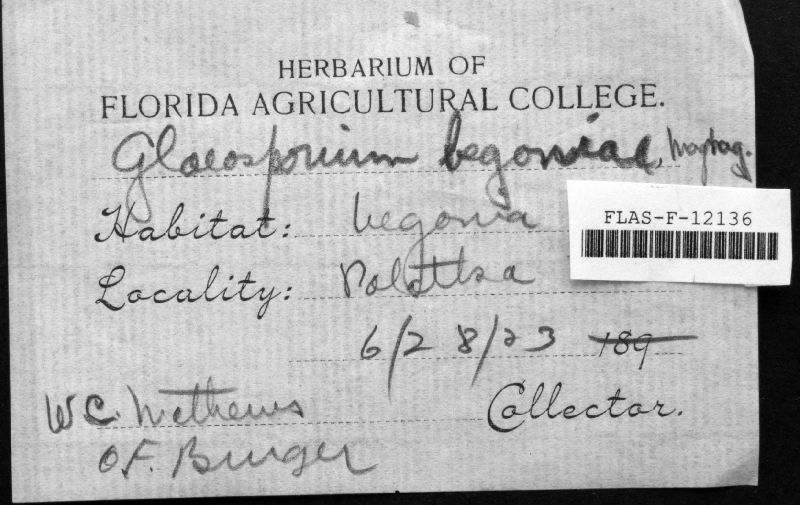 HERBARIUM OF
FLORIDA AGRICULTURAL COLLEGE.
Gloeosporium begoniae, Magnag.
FLAS-F-12136
Habitat: begonia
Locality: Palatka
6/28/23 189
W C. Mathews Collector.
O F. Burger